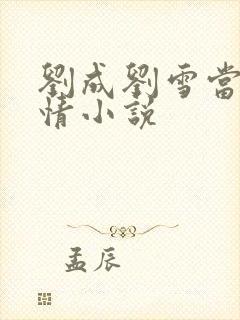 劉成劉雪當
情小説
孟辰